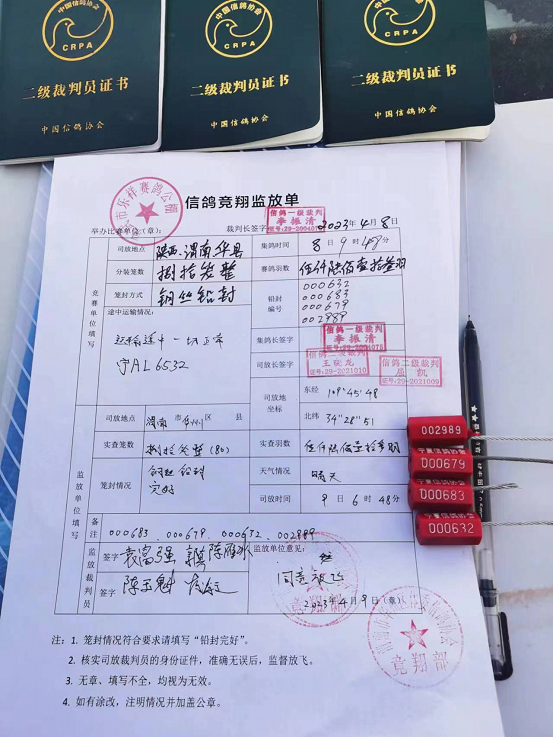 中国信鸽协会
CRPA
二级裁判员证书
中国信鸽协会
中国信鸽协会
CRPA
二级裁判员证书
中国信鸽协会
中国信鸽协会
CRPA
二级裁判员证书
中国信鸽协会
信鸽竞翔监放单
市乐祥赛鸽公棚
举办比赛单位(章):
裁判长签字
信鸽一级裁判
李振清
2023年4月8日
竞赛单位填写
司放地点
陕西·渭南华县
集鸽时间
8日9时48分
分装笼数
捌拾笼整
赛鸽羽数
笼封方式
钢丝铅封
铅封编号
000632
000683
000679
002989
途中运输情况:
运输途中一切正常
宁AL6532
集鸽长签字
信鸽一级裁判
李振清
司放长签字
信鸽二级裁判
王晓龙
证号:29-2021010
信鸽二级裁判
屈凯
证号:29-2021009
司放地坐标
东经
109°45'48
北纬
34°28'51
监放单位填写
司放地点
渭南市 华州区 县
实查笼数
捌拾笼整(80)
实查羽数
笼封情况
钢丝铅封
完好
天气情况
晴天
司放时间
9日6时48分
备注
000683.000679.000632.002989
监放裁判员
签字
袁富强
陈雁冰
监放单位意见:
签字
陈玉魁
同意放飞
2023年4月9日(章)
竞翔部
002989
000679
000683
000632
注:1. 笼封情况符合要求请填写“铅封完好”。
2. 核实司放裁判员的身份证件,准确无误后,监督放飞。
3. 无章、填写不全,均视为无效。
4. 如有涂改,注明情况并加盖公章。